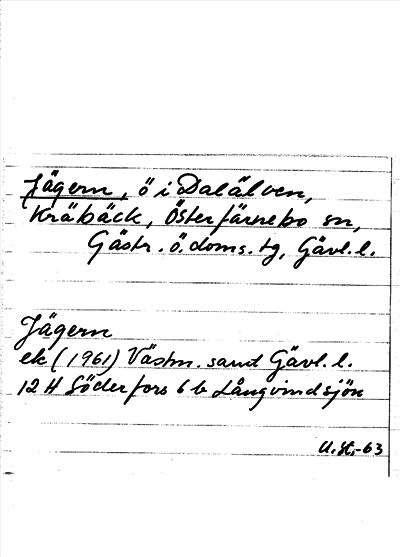 Jägern, ö i Dalälven,
Kräbäck, Österfärnebo sn,
Gästr. ö. doms. tg, Gävl. l.
Jägern
ek (1961) Västm. samt Gävl. l.
12 H Söderfors 6 b Långvindsjön
U. St. -63